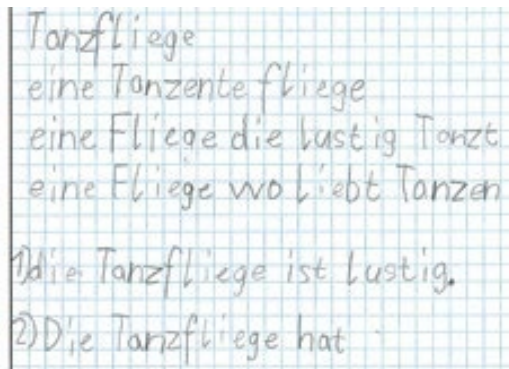 Tanzfliege
eine Tanzente fliege
eine Fliege die lustig Tanzt
eine Fliege wo liebt Tanzen
1) die Tanzfliege ist lustig.
2) Die Tanzfliege hat